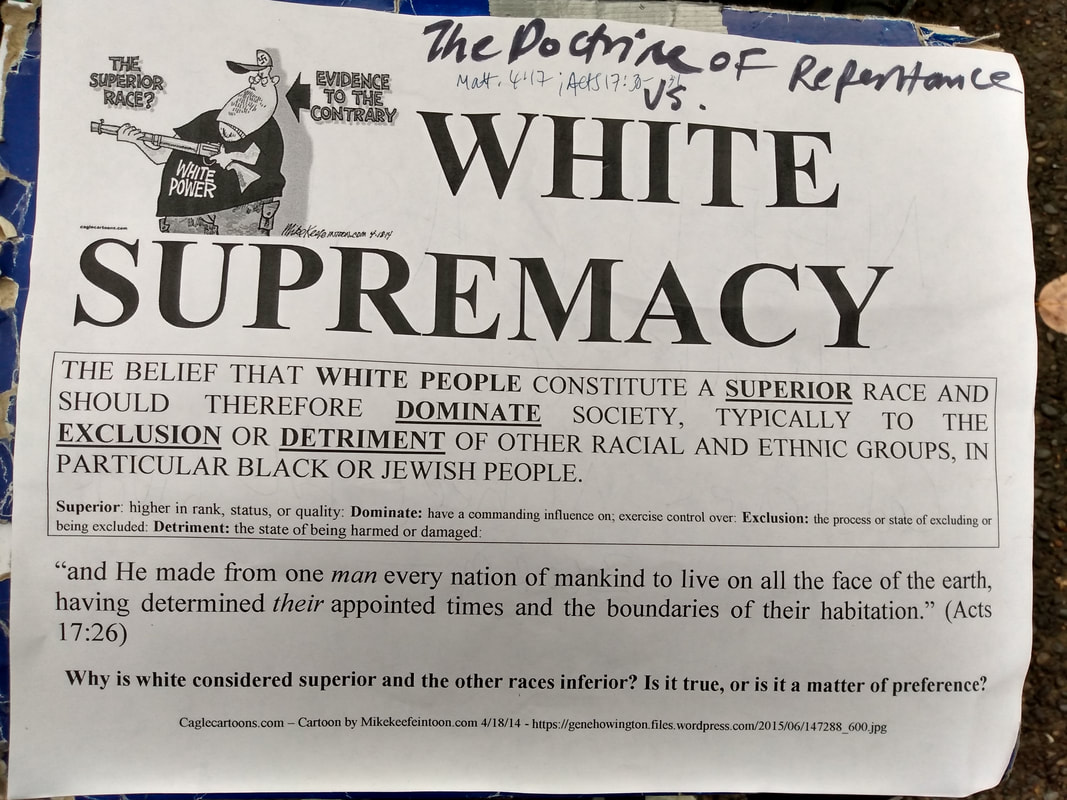 The Doctrine of Repentance
Matt. 4:17 ; Acts 17:30-31
vs.
THE
SUPERIOR
RACE?
EVIDENCE
TO THE
CONTRARY
WHITE
POWER
caglecartoons.com
WHITE
SUPREMACY
THE BELIEF THAT WHITE PEOPLE CONSTITUTE A SUPERIOR RACE AND
SHOULD THEREFORE DOMINATE SOCIETY, TYPICALLY TO THE
EXCLUSION OR DETRIMENT OF OTHER RACIAL AND ETHNIC GROUPS, IN
PARTICULAR BLACK OR JEWISH PEOPLE.
Superior: higher in rank, status, or quality: Dominate: have a commanding influence on; exercise control over: Exclusion: the process or state of excluding or
being excluded: Detriment: the state of being harmed or damaged:
“and He made from one man every nation of mankind to live on all the face of the earth,
having determined their appointed times and the boundaries of their habitation.” (Acts
17:26)
Why is white considered superior and the other races inferior? Is it true, or is it a matter of preference?
Caglecartoons.com – Cartoon by Mikekeefeintoon.com 4/18/14 - https://genehowington.files.wordpress.com/2015/06/147288_600.jpg